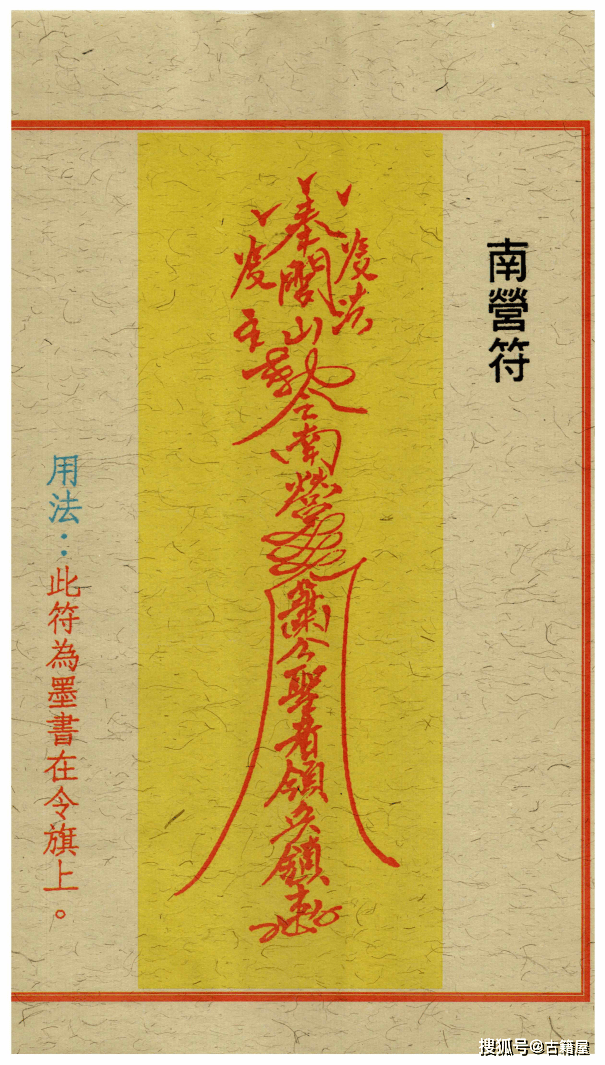 南營符
奉閭山
令南營
蕭公聖者領兵鎮
用法：此符為墨書在令旗上。
搜狐号@古籍屋